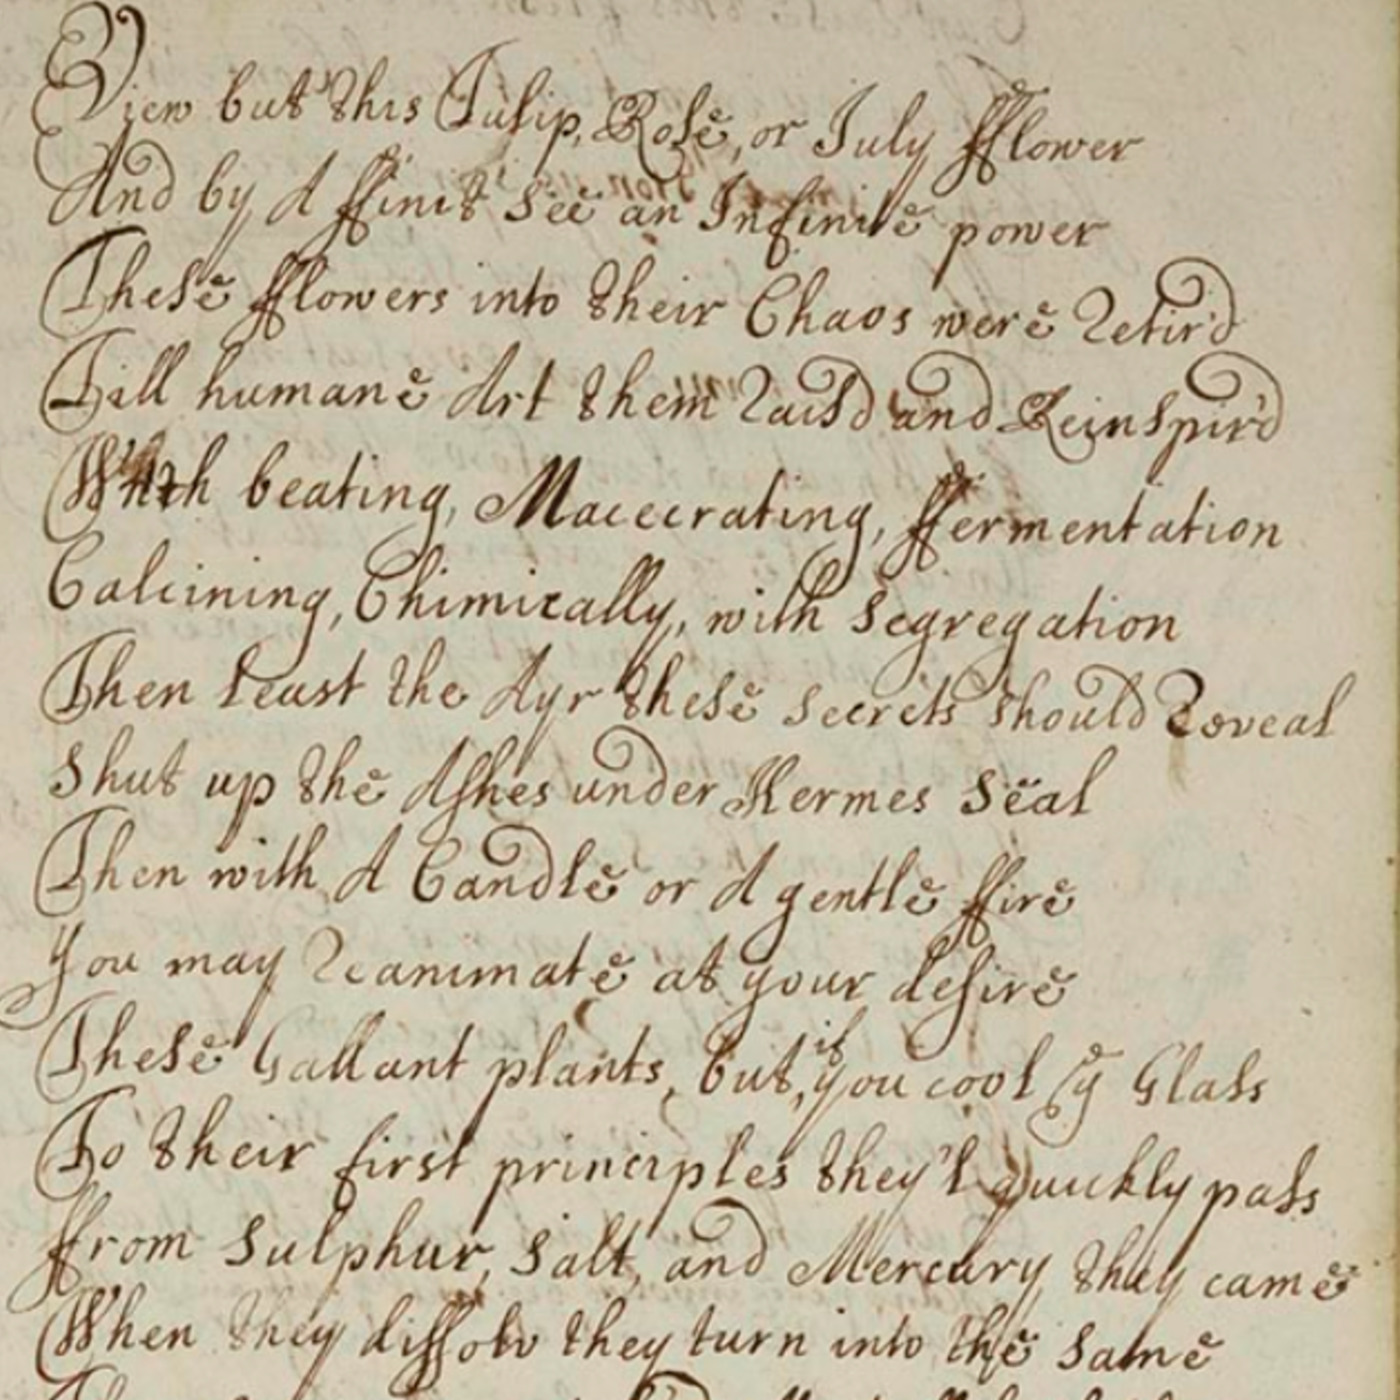 View but this Tulip, Rose, or July fflower
And by A ffinit See an Infinite power
These fflowers into their Chaos were Retir'd
Till humane Art them Raisd and Reinspir'd
With beating, Macecrating, ffermentation
Calcining, Chimically, with Segregation
Then least the Ayr these secrets should Reveal
Shut up the Ashes under Hermes Seal
Then with A Candle or A gentle ffire
You may Reanimate at your desire
These Gallant plants, but, if you cool ye Glass
To their first principles they'l quickly pass
ffrom Sulphur, Salt, and Mercury they came
When they dissolv they turn into the same